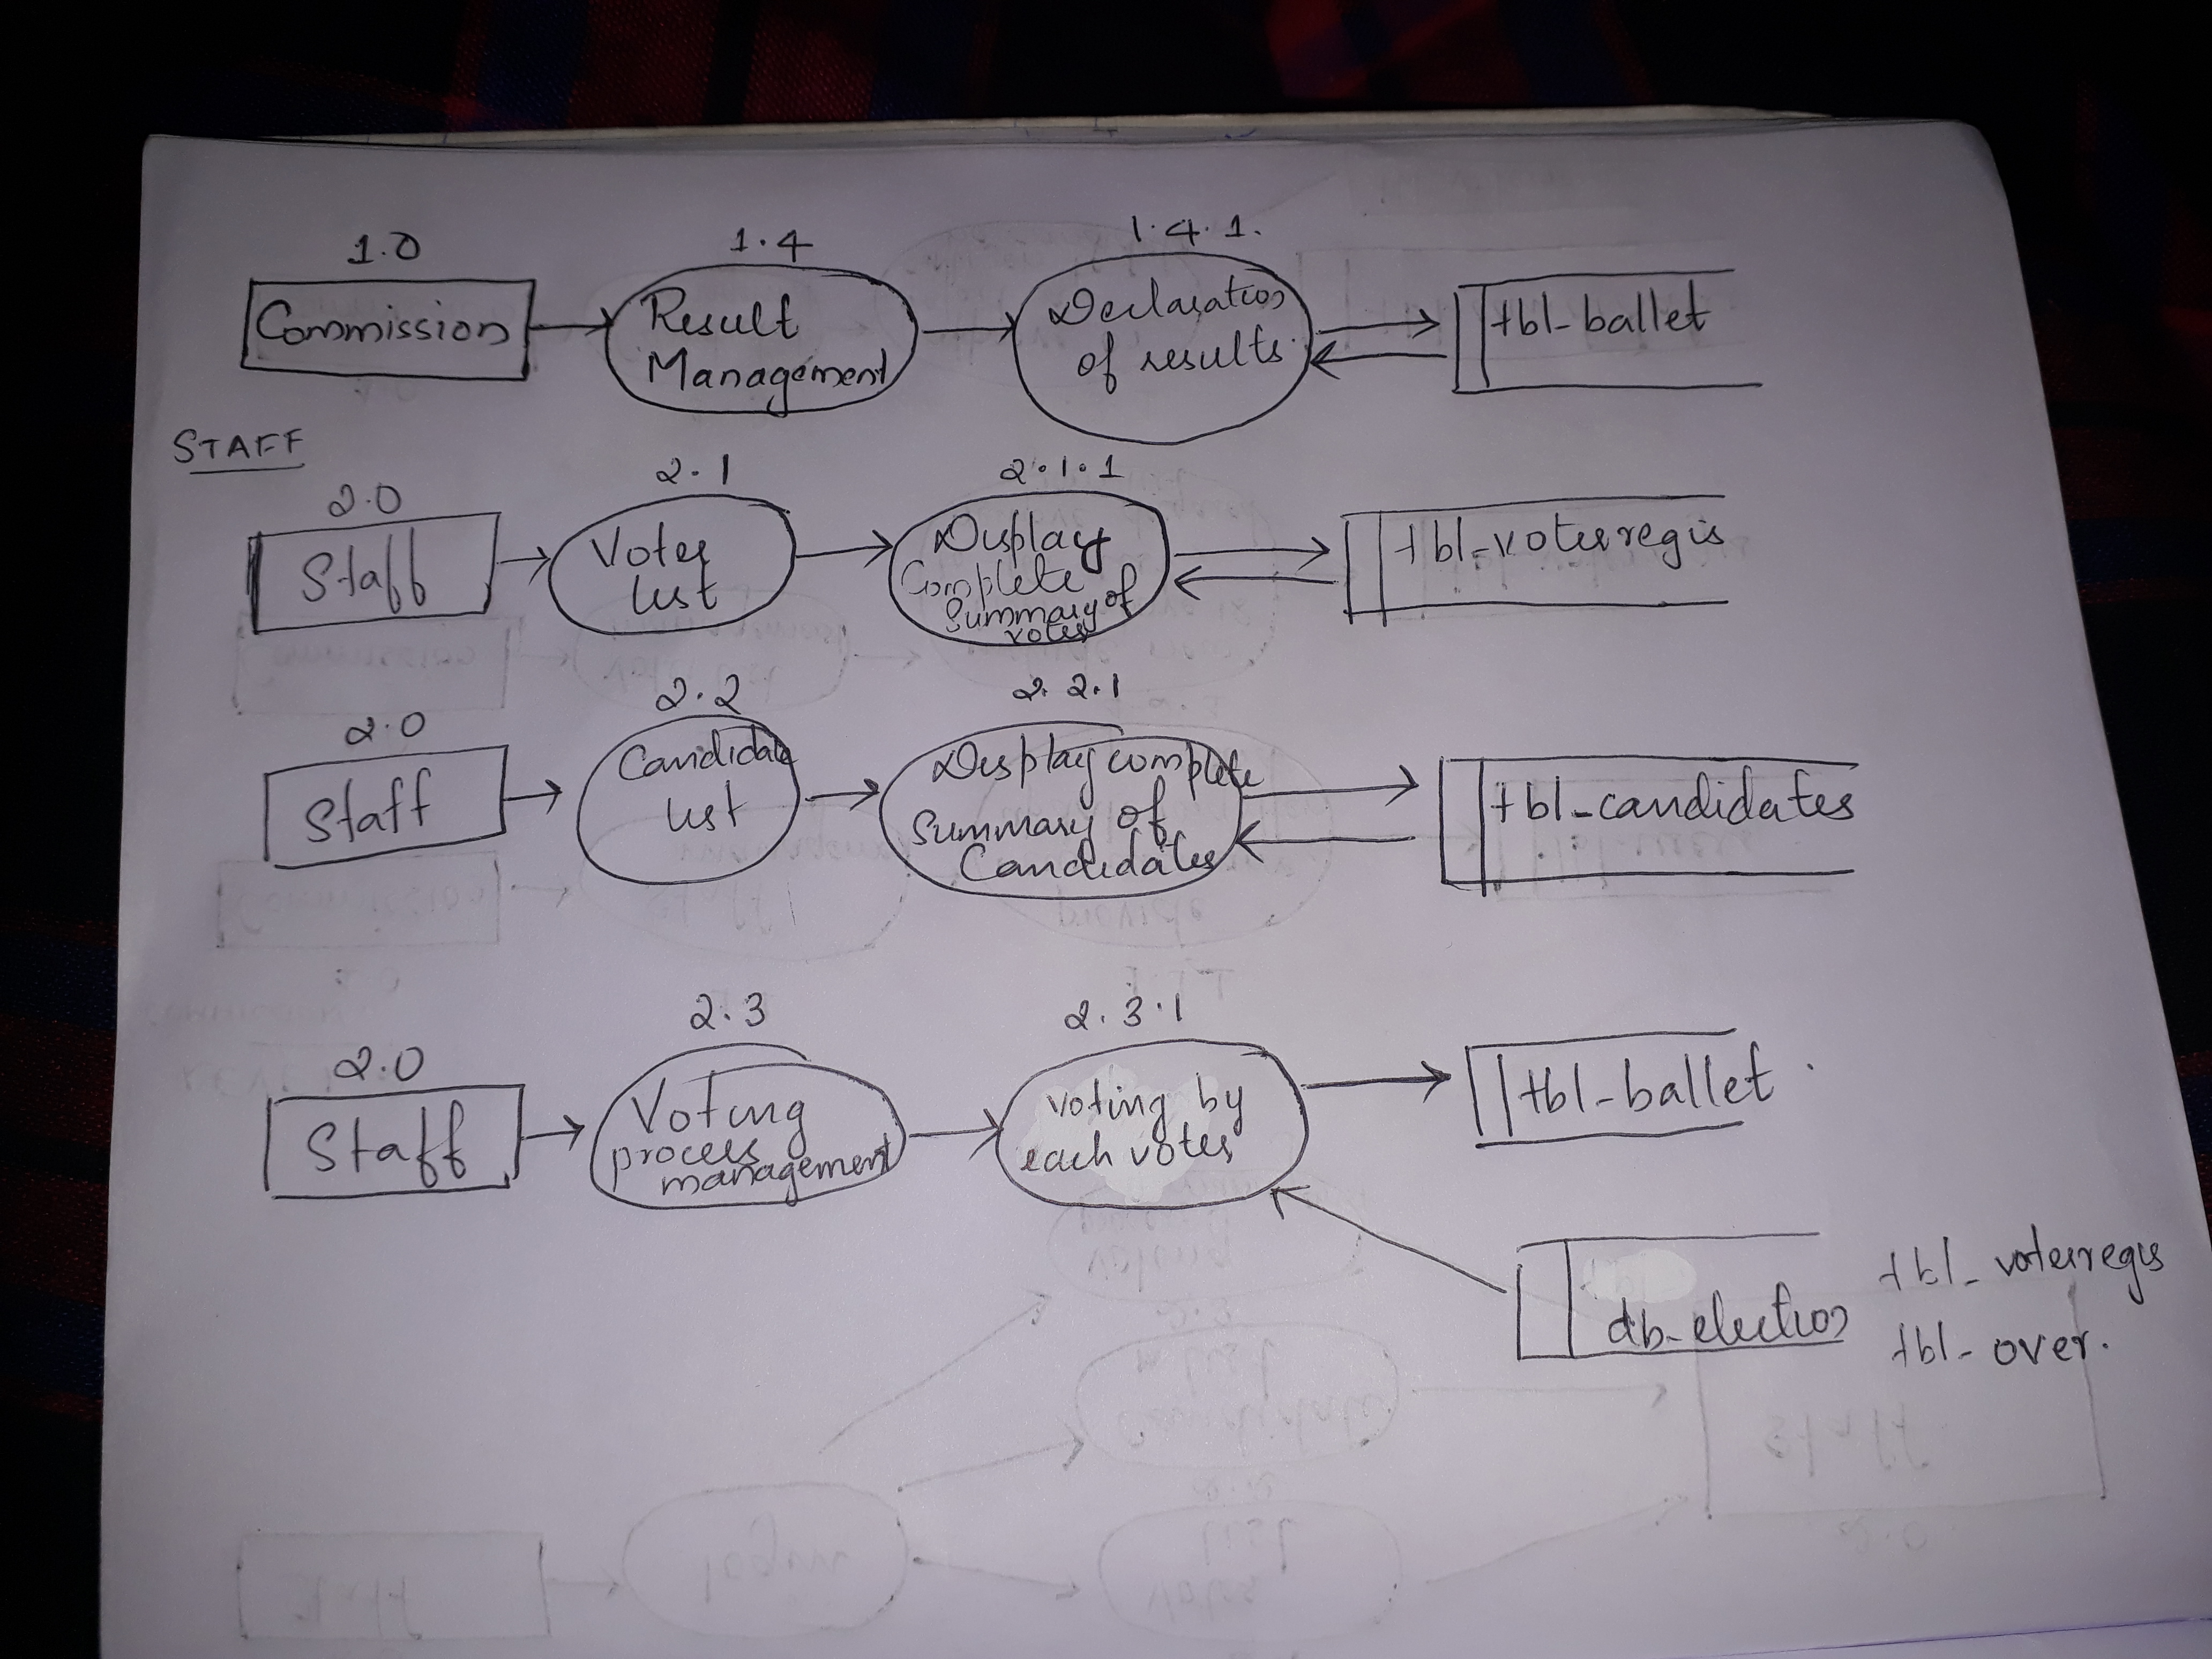 1.0
1.4
1.4.1.
Commission
Result
Management
Declaration
of results.
tbl-ballet
STAFF
2.0
2.1
2.1.1
Staff
Voter
list
Display
Complete
summary of
voter
tbl-voterregis
2.0
2.2
2.2.1
Staff
Candidate
list
Display complete
Summary of
Candidates
tbl-candidates
2.0
2.3
2.3.1
Staff
Voting
process
management
voting by
each voter
tbl-ballet.
db-election
tbl-voterregis
tbl-over.